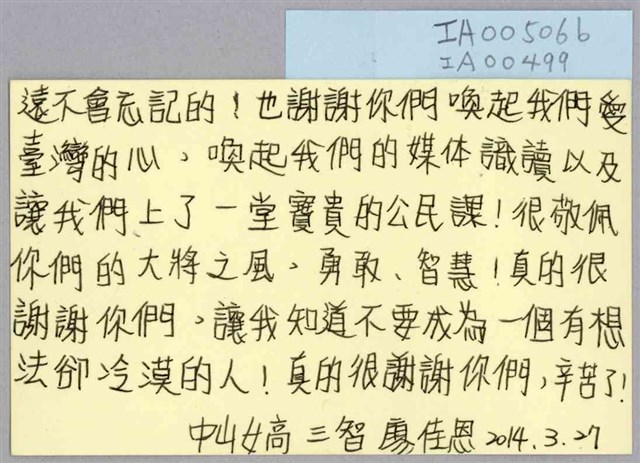 IA005066
IA00499
遠不會忘記的！也謝謝你們喚起我們愛
臺灣的心，喚起我們的媒体識讀以及
讓我們上了一堂寶貴的公民課！很敬佩
你們的大將之風，勇敢、智慧！真的很
謝謝你們，讓我知道不要成為一個有想
法卻冷漠的人！真的很謝謝你們，辛苦了！
中山女高 三智 廖佳恩 2014.3.27